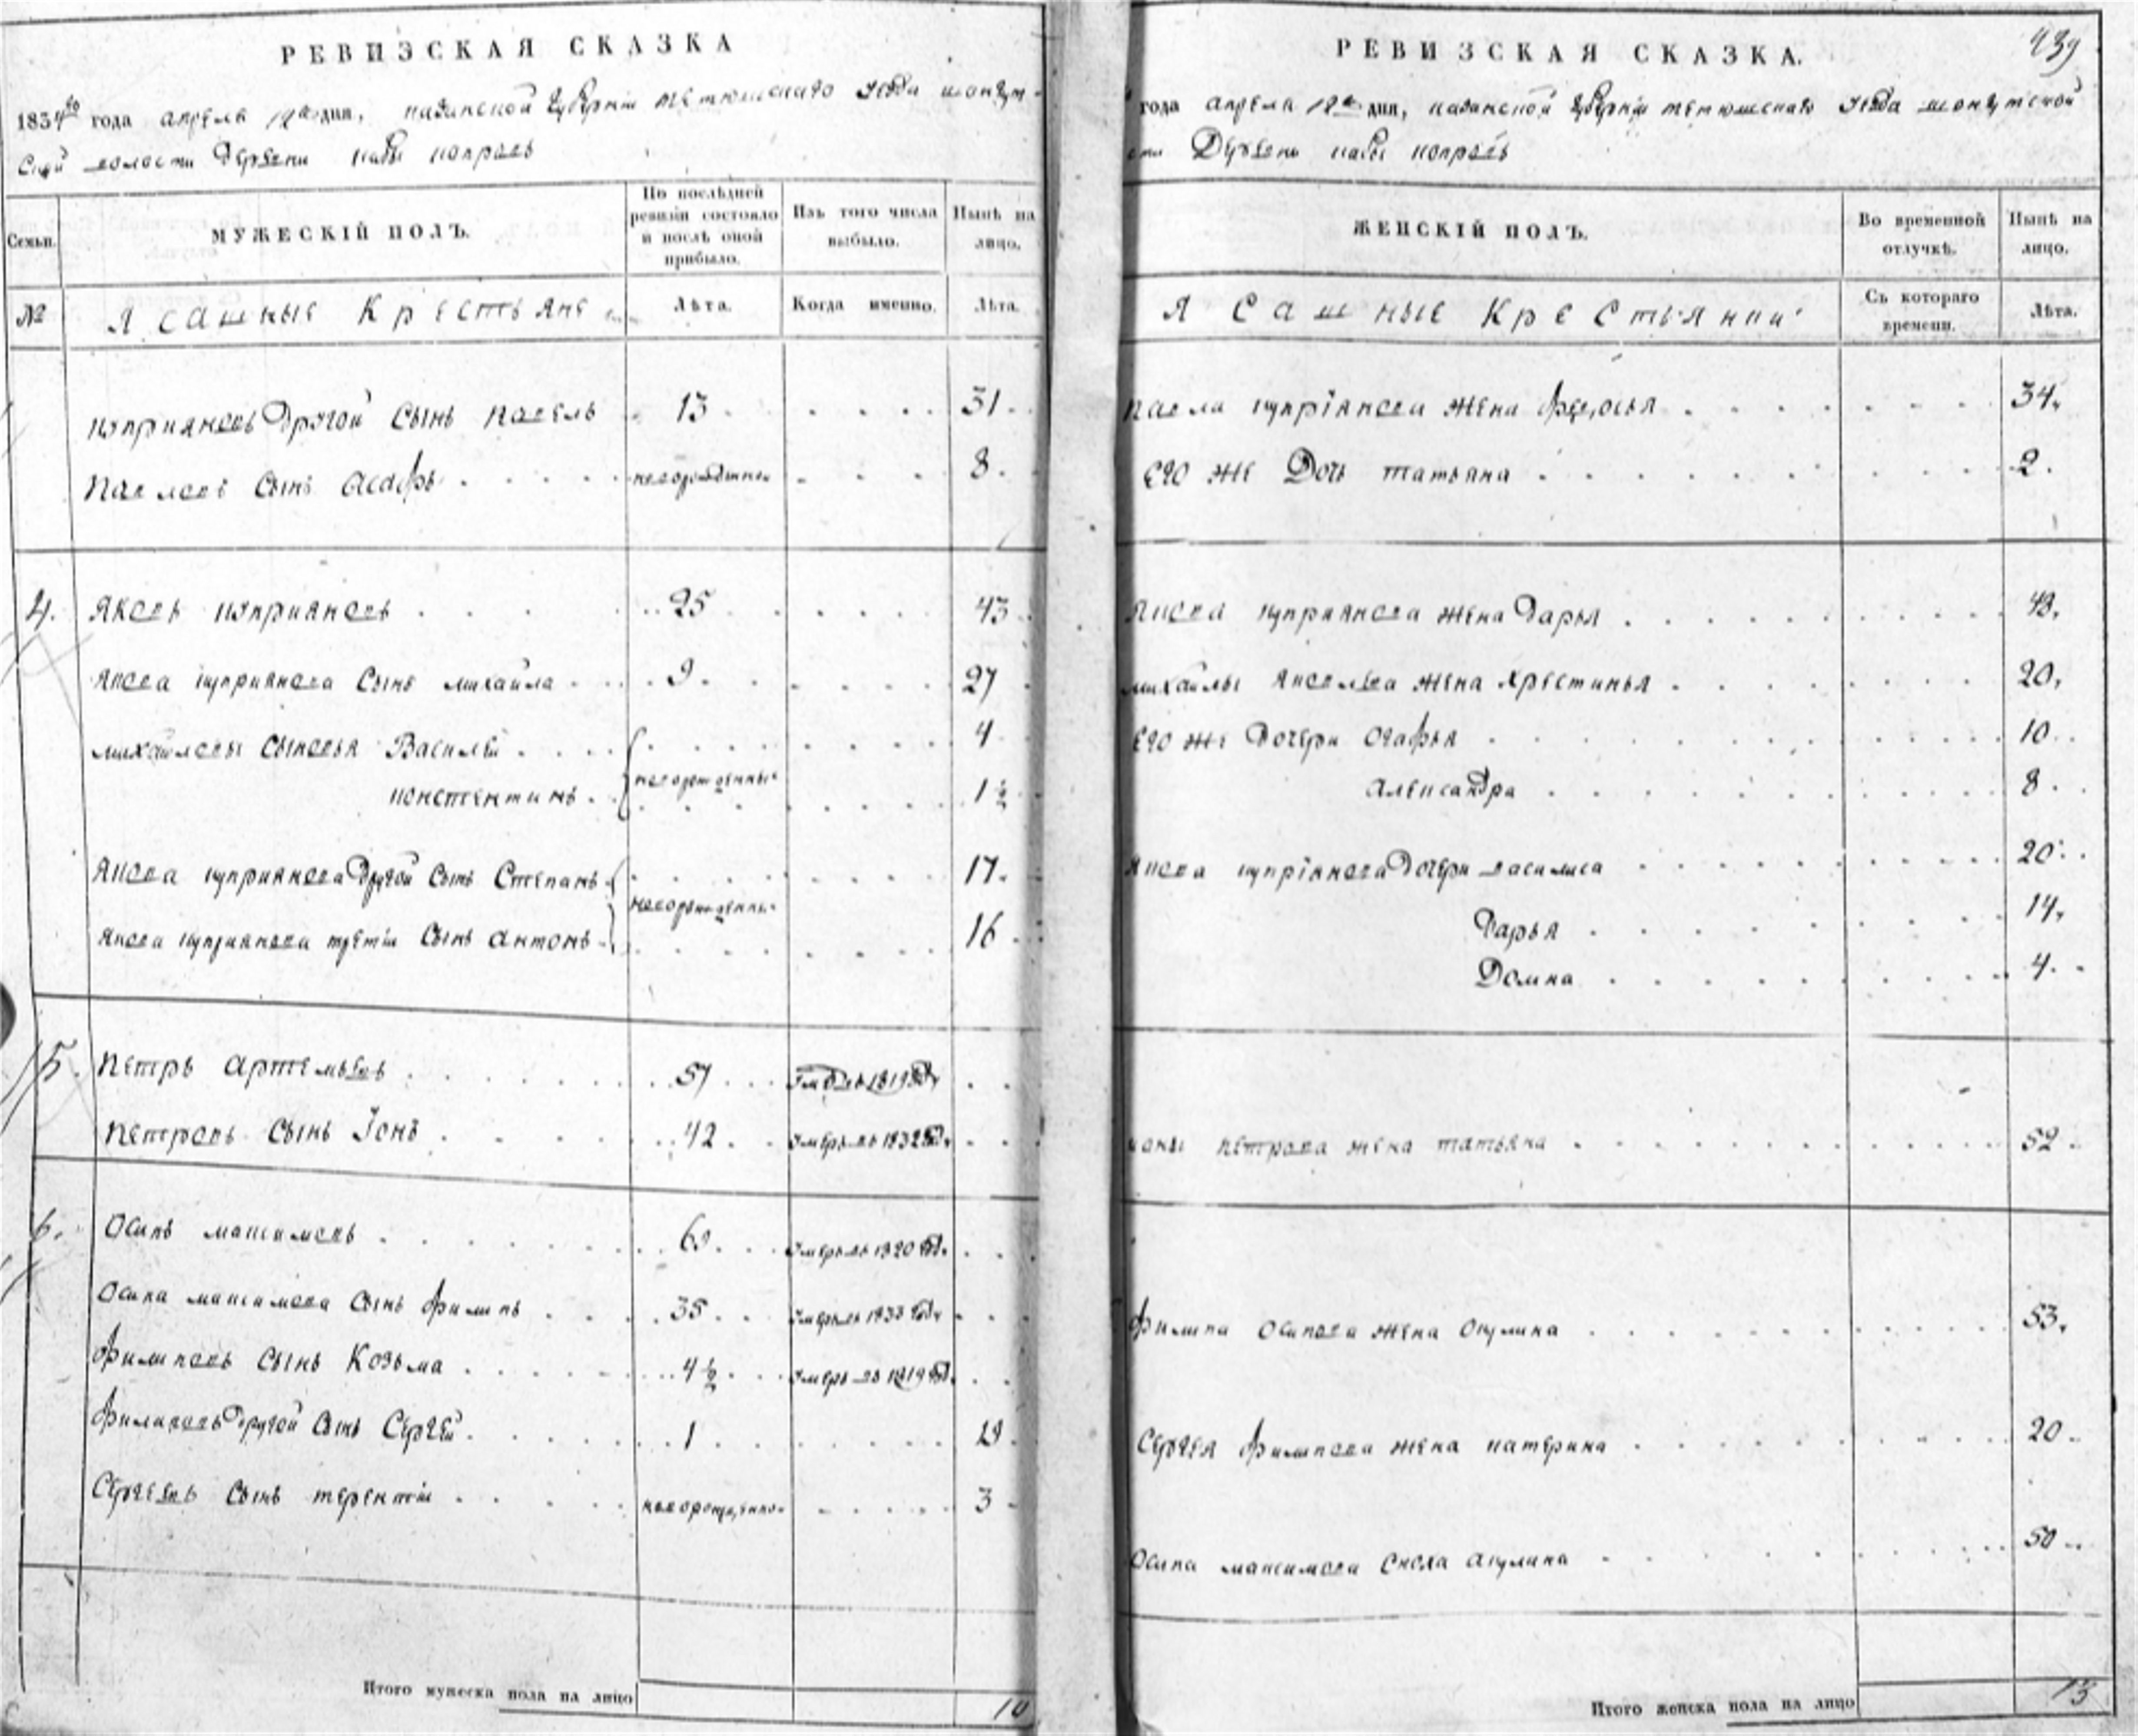 РЕВИЗСКАЯ СКАЗКА
1834го года апреля 12го дня, казанской губернии тетюшскаго уезда шонгут-
ской волости Деревни
Семьи.
МУЖЕСКІЙ ПОЛЪ.
По послѣдней ревизіи состояло и послѣ оной прибыло.
Изъ того числа выбыло.
Нынѣ на лицо.
№
Ясашные Крестьяне
Лѣта.
Когда именно.
Лѣта.
Куприяновъ Другой Сынъ Павелъ 13 31
Павловъ Сынъ Асафъ новорожденной 8
4. Яковъ Куприяновъ 25 43
Якова Куприянова Сынъ михайла 9 27
михайловы Сыновья Василей 4
новорожденные
Констентинъ 1½
Якова куприянова Другой Сынъ Степанъ 17
новорожденные
Якова куприянова третiй Сынъ антонъ 16
5. Петръ Артемьевъ 57 умре въ 1819 году
Петровъ Сынъ Iонъ 42 умре въ 1832 году
6. Осипъ максимовъ умре въ 1820 году
Осипа максимова Сынъ филипъ 35 умре въ 1833 году
филиповъ Сынъ Козьма 4½ умре въ 1819 году
филиповъ Другой Сынъ Сергей 1 19
Сергеевъ Сынъ терентiй новорожденной 3
Итого мужеска пола на лицо 10
439
РЕВИЗСКАЯ СКАЗКА.
года апреля 12го дня, казанской губернии тетюшскаго уезда шонгутской
Деревни
ЖЕНСКІЙ ПОЛЪ.
Во временной отлучкѣ.
Нынѣ на лицо.
Ясашные Крестьянки
Съ котораго времени.
Лѣта.
Павла купрiянова жена федосья 34
Его же Дочь татьяна 2
Якова куприянова жена Дарья 43
михайлы Яковлева жена Христинья 20
Его же Дочери Огафья 10
Александра 8
Якова купрiянова Дочери василиса 20
Дарья 14
Домна 4
ионы Петрова жена татьяна 52
филипа Осипова жена Окулина 53
Сергея филипова жена катерина 20
Осипа максимова Сноха акулина 50
Итого женска пола на лицо 13